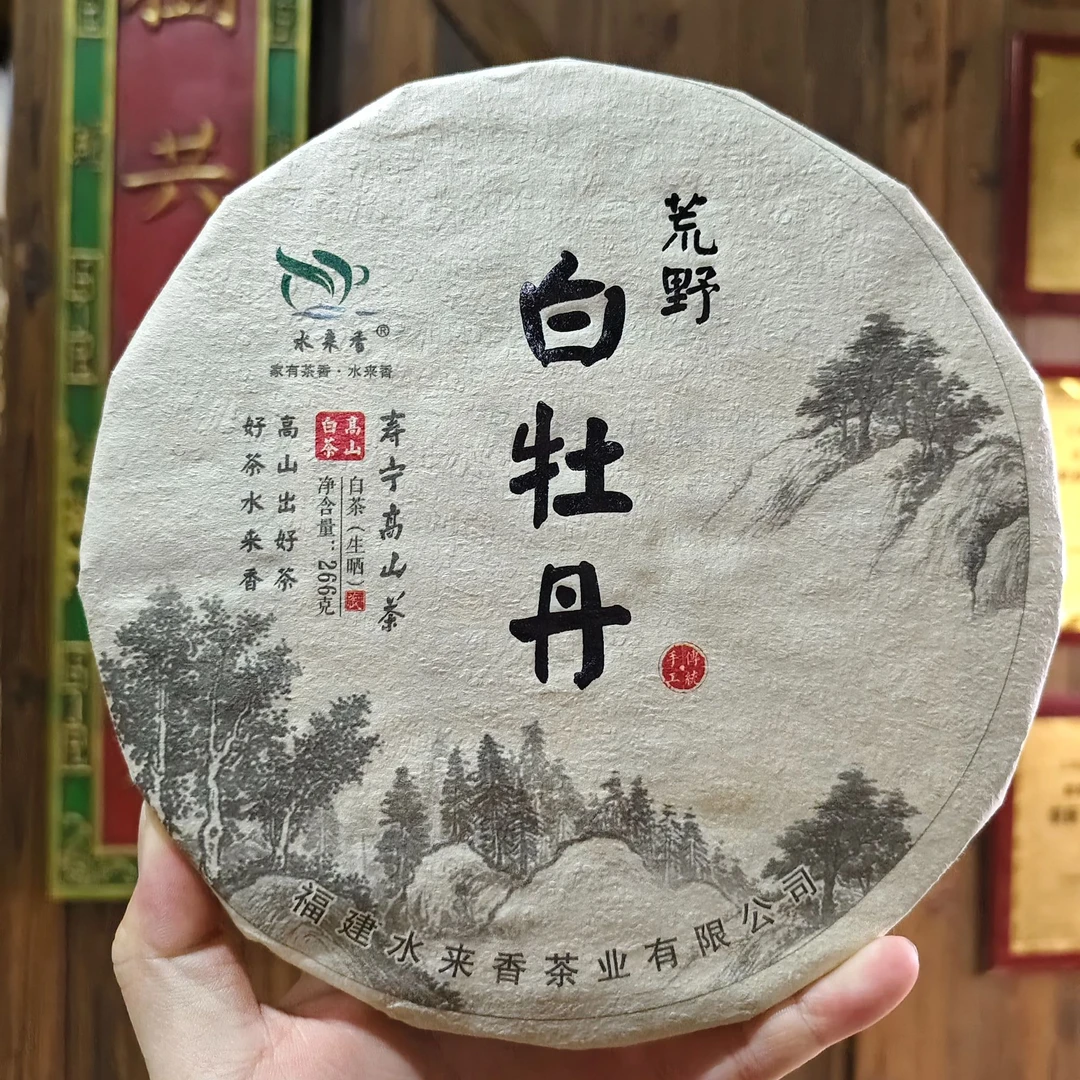 荒野
白牡丹
水来香®
家有茶香·水来香
寿宁高山茶
高山
白茶
白茶(生晒)
净含量:266克
高山出好茶
好茶水来香
傳統
手工
福建水来香茶业有限公司
共